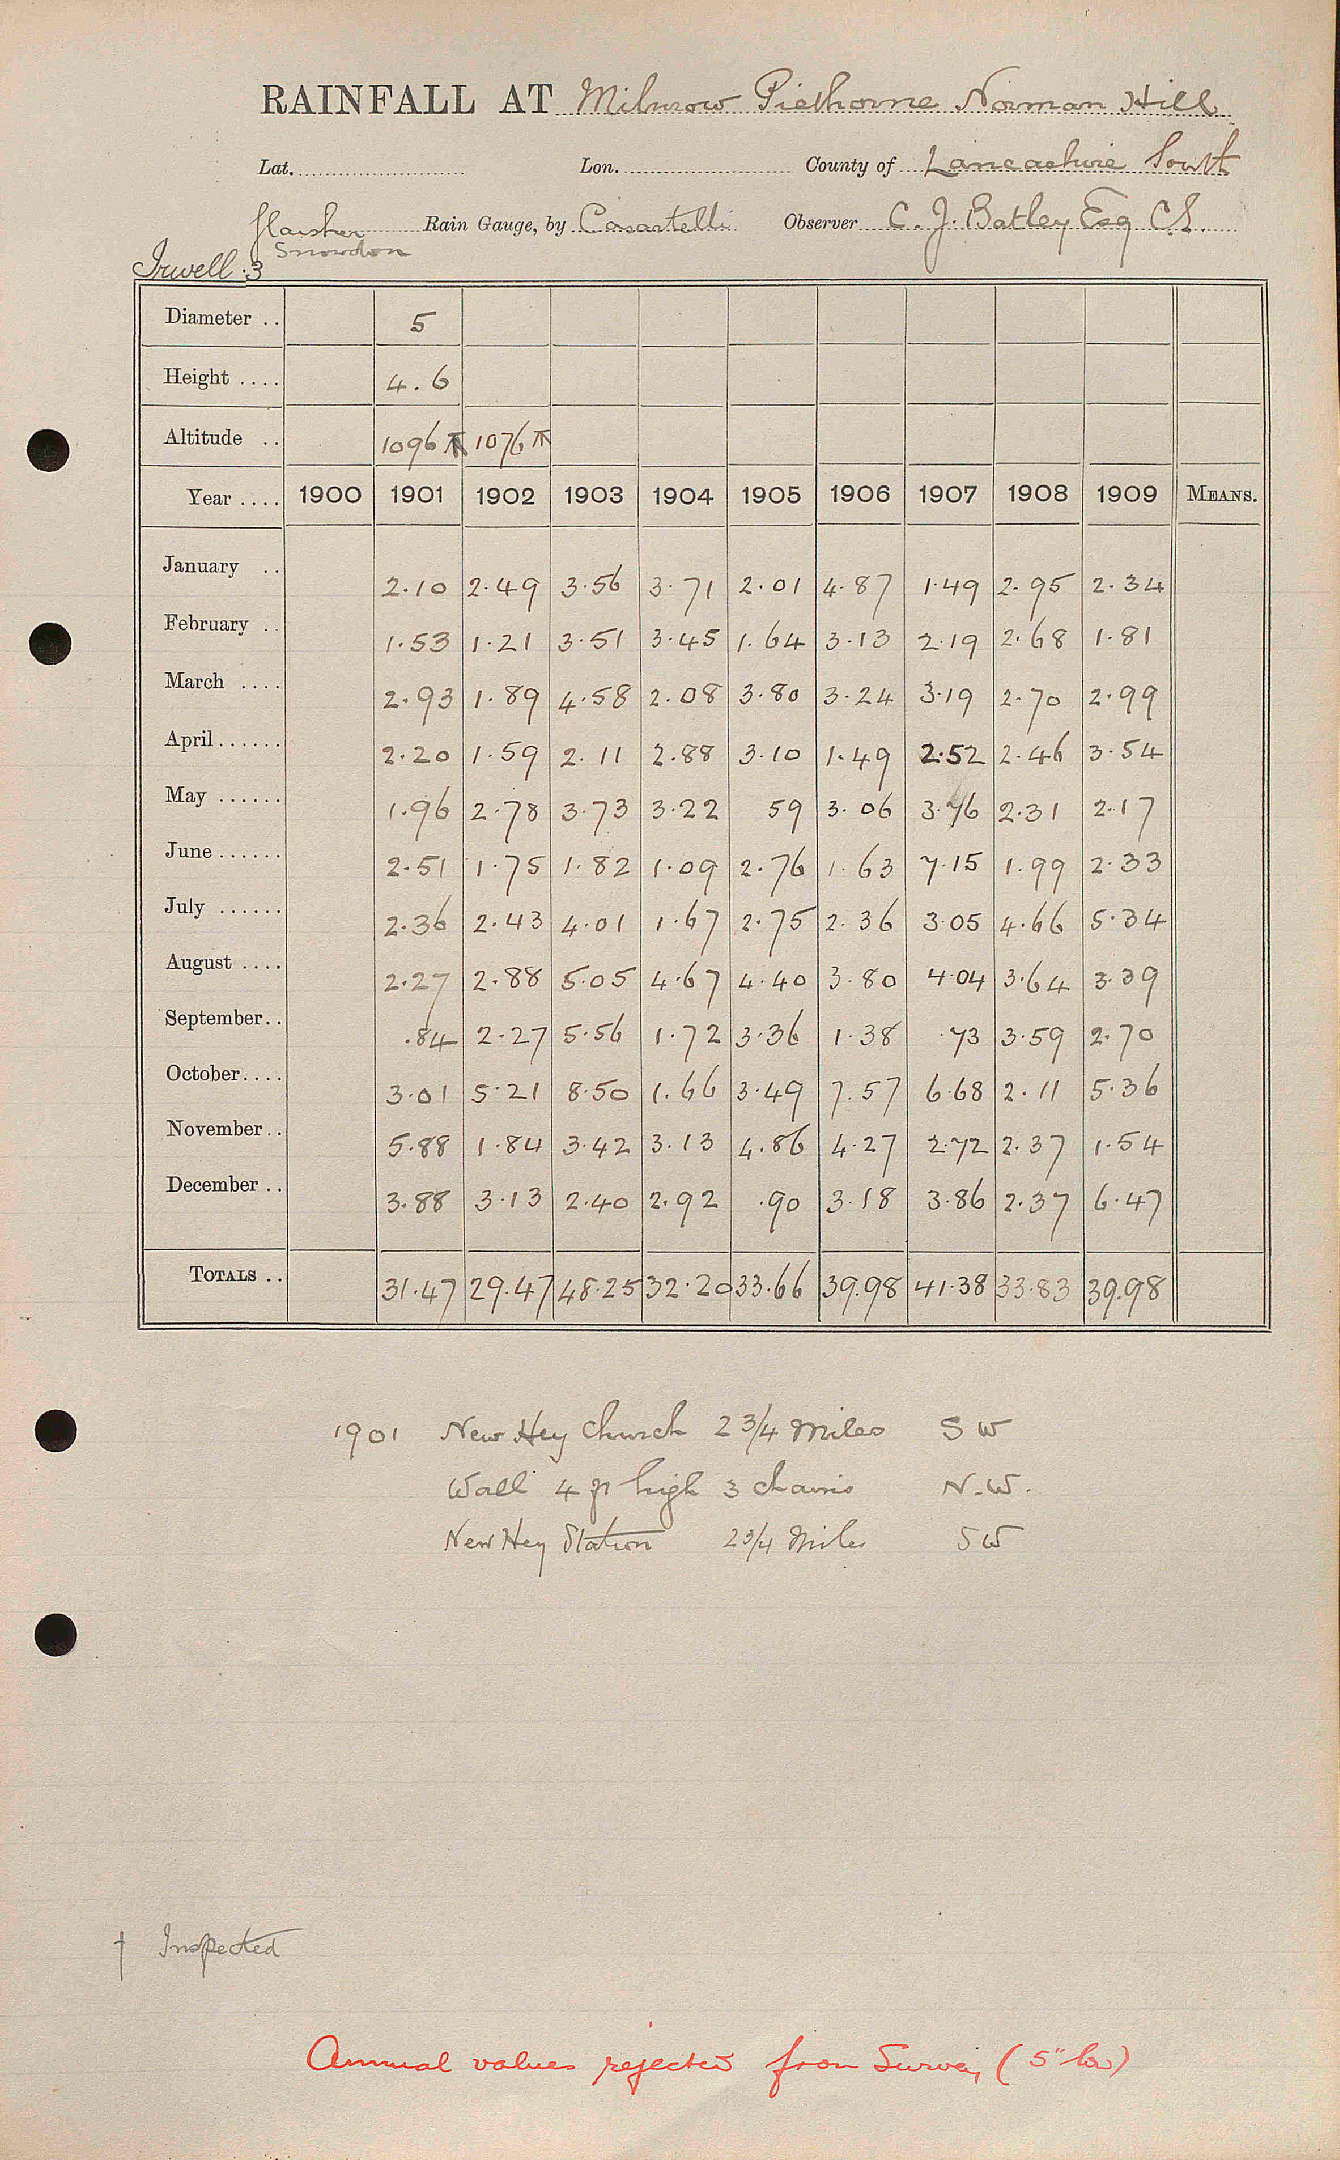 RAINFALL AT Milnrow Piethorne Norman Hill
Lat. Lon. County of Lancashire South
Glaisher Snowdon Rain Gauge, by Casartelli Observer C. J. Batley Esq C.E.
Irwell . 3
Diameter .. 5
Height .... 4.6
Altitude .. 1096 1076
Year .... 1900 1901 1902 1903 1904 1905 1906 1907 1908 1909 MEANS.
January .. 2.10 2.49 3.56 3.71 2.01 4.87 1.49 2.95 2.34
February .. 1.53 1.21 3.51 3.45 1.64 3.13 2.19 2.68 1.81
March .... 2.93 1.89 4.58 2.08 3.80 3.24 3.19 2.70 2.99
April ...... 2.20 1.59 2.11 2.88 3.10 1.49 2.52 2.46 3.54
May ...... 1.96 2.78 3.73 3.22 59 3.06 3.76 2.31 2.17
June ...... 2.51 1.75 1.82 1.09 2.76 1.63 7.15 1.99 2.33
July ...... 2.36 2.43 4.01 1.67 2.75 2.36 3.05 4.66 5.34
August .... 2.27 2.88 5.05 4.67 4.40 3.80 4.04 3.64 3.39
September .. .84 2.27 5.56 1.72 3.36 1.38 .73 3.59 2.70
October .... 3.01 5.21 8.50 1.66 3.49 7.57 6.68 2.11 5.36
November .. 5.88 1.84 3.42 3.13 4.86 4.27 2.72 2.37 1.54
December .. 3.88 3.13 2.40 2.92 .90 3.18 3.86 2.37 6.47
TOTALS .. 31.47 29.47 48.25 32.20 33.66 39.98 41.38 33.83 39.98
1901 New Hey Church 2 3/4 Miles S W
Wall 4 ft high 3 chains N.W.
New Hey Station 2 3/4 Miles S W
† Inspected
Annual values rejected from Survey (5" low)